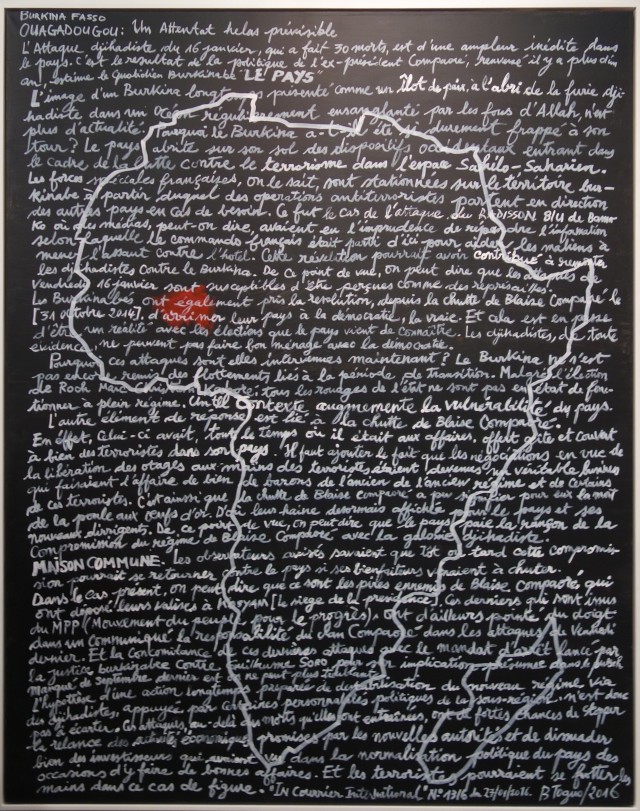 BURKINA FASSO
OUAGADOUGOU: Un Attentat helas prévisible
L'Attaque djihadiste du 16 janvier, qui a fait 30 morts, est d'une ampleur inédite dans
le pays. C'est le resultat de la politique de l'ex-président Compaoré, renversé il y a plus d'un
an, estime le Quotidien Burkinabé "LE PAYS"
L'image d'un Burkina longt présenté comme un îlot de paix, à l'abri de la furie dji-
hadiste dans un océan réguli rement ensanglanté par les fous d'Allah, n'est
plus d'actualité. Pourquoi le Burkina a-t-il été si durement frappé à son
tour? Le pays abrite sur son sol des dispositifs occidentaux entrant dans
le cadre de la lutte contre le terrorisme dans l'espace Sahélo-Saharien.
Les forces spéciales françaises, on le sait, sont stationnées sur le territoire bur-
kinabe à partir duquel des operations antiterroristes partent en direction
des autres pays en cas de besoin. Ce fut le cas de l'attaque du RADISSON BLU de Bama-
ko où des médias, peut-on dire, avaient eu l'imprudence de répandre l'information
selon laquelle le commando français était parti d'ici pour aider les maliens à
mener l'assaut contre l'hotel. Cette révélation pourrait avoir contribué à
les djihadistes contre le Burkina. De ce point de vue, on peut dire que les attaques
Vendredi 16 janvier sont susceptibles d'être perçues comme des représailles.
Les Burkinabés ont également pris la revolution, depuis la chutte de Blaise Compaoré le
[31 octobre 2014], d'arrimer leur pays à la démocratie, la vraie. Et cela est en passe
d'être un réalité avec les élections que le pays vient de connaître. Les djihadistes, de toute
évidence, ne peuvent pas faire bon ménage avec la démocratie.
Pourquoi ces attaques sont elles intervenues maintenant? Le Burkina ne s'est
pas encore remis des flottements liés à la période de transition. Malgré l'élection
de Roch Marc Christian Kaboré, tous les rouages de l'état ne sont pas en état de fonc-
tionner à plein régime. Un tel contexte augmente la vulnérabilité du pays.
L'autre élément de réponse est lié à la chutte de Blaise Compaoré.
En effet, celui-ci avait, tout le temps où il était aux affaires, offert gite et couvert
à bien des terroristes dans son pays. Il faut ajouter le fait que les négociations en vue de
la libération des otages aux mains des terroristes étaient devenues un véritable business
qui faisaient d'affaire de bien de barons de l'ancien de l'ancien régime et de certains
de ces terroristes. C'est ainsi que la chutte de Blaise Compaoré a pu sonner pour eux la mort
de la poule aux oeufs d'or. D'où leur haine desormais affichée pour le pays et ses
nouveaux dirigents. De ce point de vue, on peut dire que le pays paie la rançon de la
compromission du régime de Blaise Compaoré avec la galaxie djihadiste.
MAISON COMMUNE. Les observateurs avisés savaient que tôt ou tard cette compromis-
sion pourrait se retourner contre le pays si ses bienfaiteurs venaient à chuter.
Dans le cas présent, on peut dire, que ce sont les pires ennemis de Blaise Compaoré, qui
ont déposé leurs valises à Kosyam [le siege de la presidence]. Ces derniers qui sont issus
du MPP (Mouvement du peuple pour le progrès), ont d'ailleurs pointé du doigt
dans un communiqué la responsabilité du clan Compaoré dans les attaques de Vendredi
dernier. Et la concomitance de ces dernières attaques avec le mandat d'arrêt lancé par
la justice burkinabée contre Guillaume SORO pour son implication présumée dans le putsch
manqué de septembre dernier est on ne peut plus
L'hypothèse d'une action longtemps préparée de destabilisation du nouveau régime via
des djihadistes, appuyée par certaines personnalités politiques de la sous-région, n'est donc
pas à écarter. Ces attaques, au-delà des morts qu'elles ont entraînées, ont de fortes chances de stopper
la relance des activités économiques promise par les nouvelles autorités et de dissuader
bien des investisseurs qui auraient vu dans la normalisation politique du pays des
occasions d'y faire de bonnes affaires. Et les terroristes pourraient se frotter les
mains dans ce cas de figure. "In Courrier International" N° 1316 du 27/01/2016. B. Toguo/2016